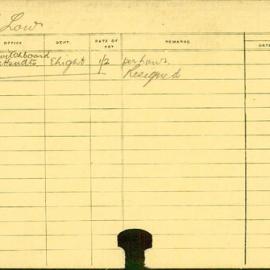 Low
OFFICE DEPT. RATE OF PAY REMARKS DATE
Switchboard Elight 1/2 per hour.
Attendts Resigned